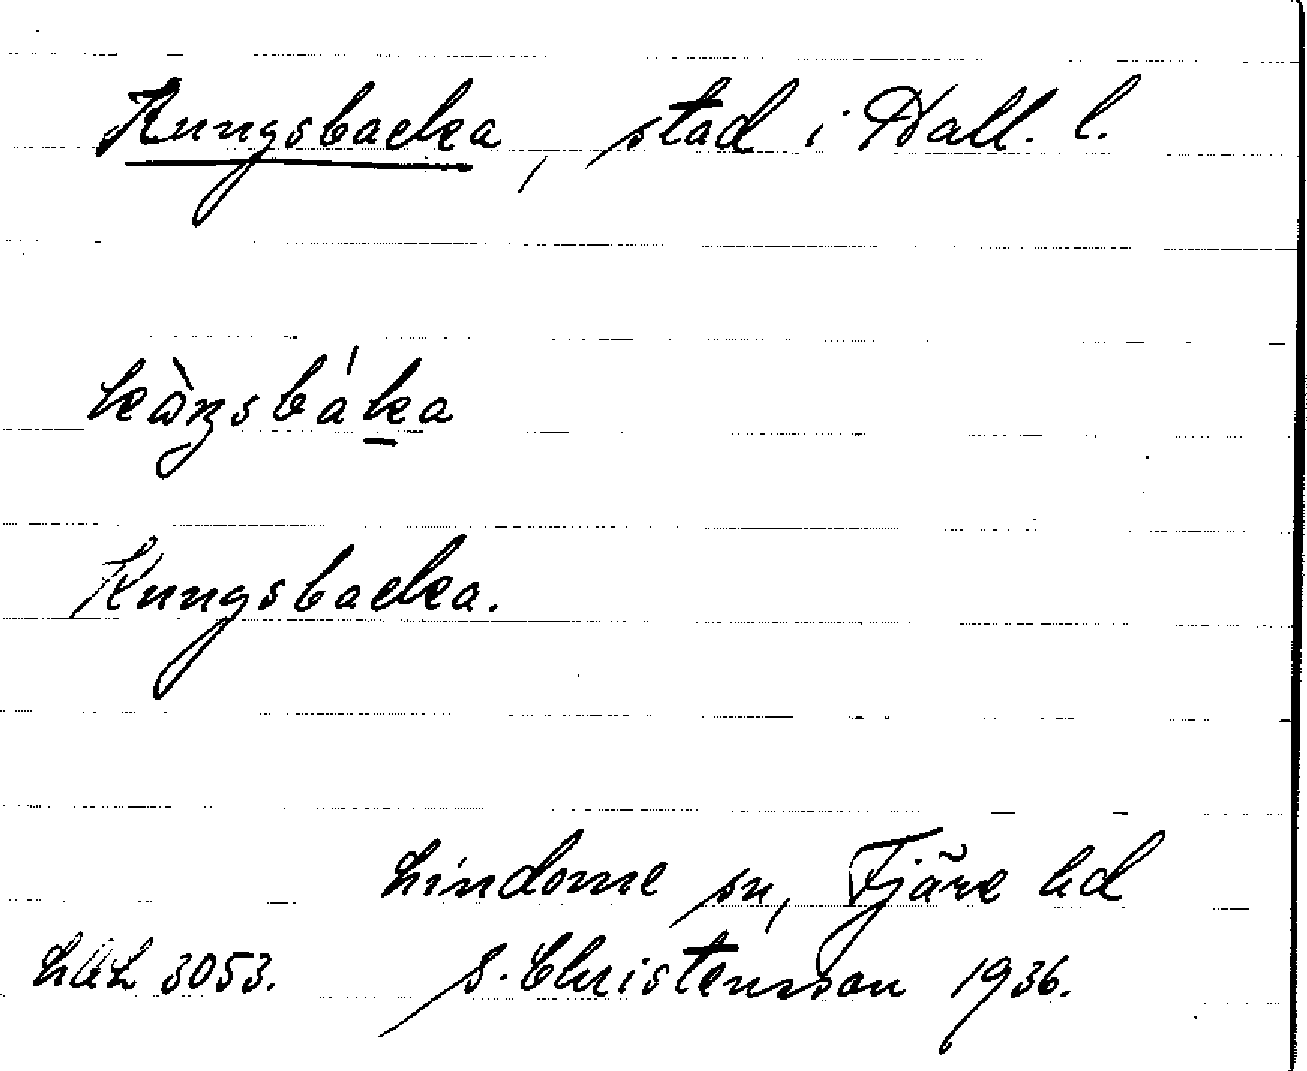 Kungsbacka, stad i Hall. l.
Kungsbacka.
Lindome sn, Fjäre hd
3053. S. Christensson 1936.